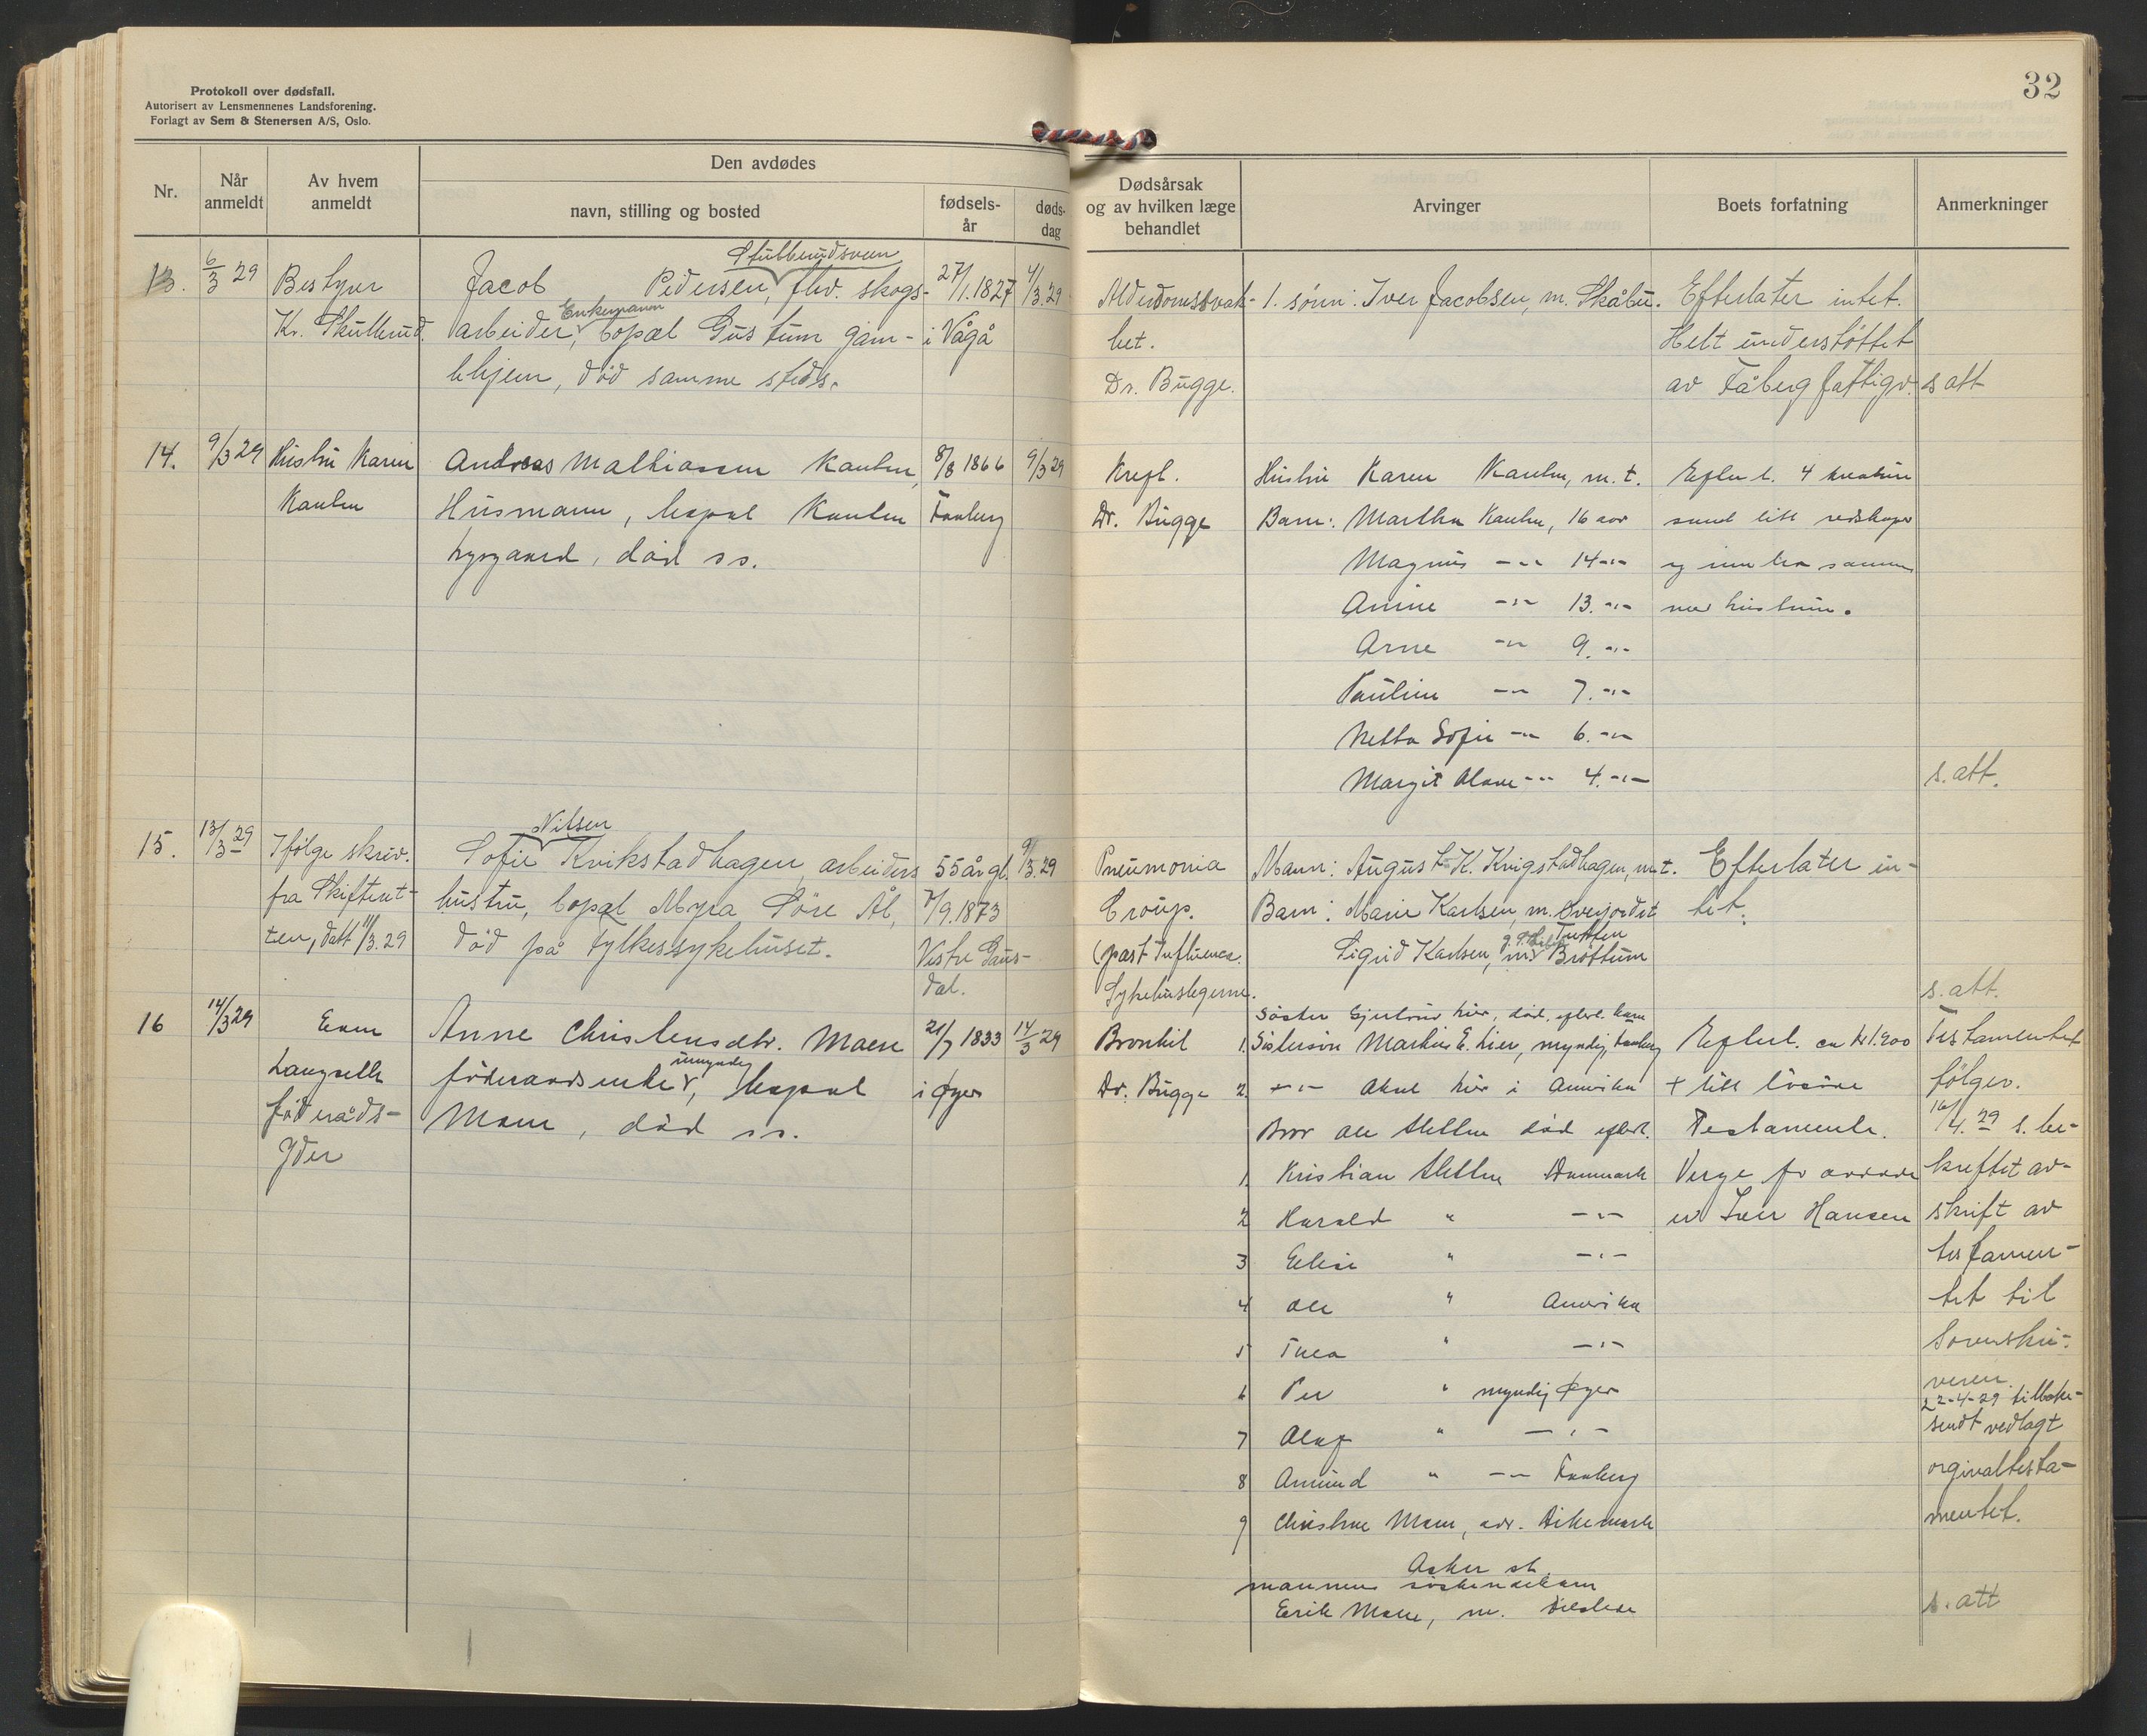 Protokoll over dødsfall.
Autorisert av Lensmennenes Landsforening.
Forlagt av Sem & Stenersen A/S, Oslo.
32
Nr.
Når anmeldt
Av hvem anmeldt
Den avdødes
navn, stilling og bosted
fødsels-år
døds-dag
Dødsårsak
og av hvilken læge
behandlet
Arvinger
Boets forfatning
Anmerkninger
13.
6/3 29
Bestyrer
Kr. Skullerud.
Stubberudsveen
Jacob Pedersen, fhv. skogs-
Enkemann
arbeider, bopæl Gustum gam-
lehjem, død samme steds.
27/1.1827
i Vågå
4/3.29
Alderdomssvak-
het.
Dr. Bugge.
1. sønn: Iver Jacobsen, m. Skåbu.
Efterlater intet.
Helt understøttet
av Fåberg fattigv.
s att
14.
9/3 29
Hustru Karen
Kanten
Andreas Mathiassen
Husmann, bopæl
død ss.
8/8 1866
Faaberg
9/3 29
Kreft.
Dr. Bugge
Hustru Karen m. t.
Barn: Martha 16 aar
Magnus -"- 14 -"-
-"- 13. -"-
Arne -"- 9. -"-
Pauline -"- 7. -"-
Netta Sofie -"- 6. -"-
Margit -"- 4. -"-
Efterl. 4 kreaturer
samt litt redskaper
og innbo sammen
med hustruen.
s. att.
15.
13/3 29
Ifølge skriv.
fra Skifteret-
ten, datt 11/3.29
Nilsen
Sofie Kvikstadhagen, arbeiders
hustru, bopæl Myra Söre Ål,
død på Fylkessykehuset.
55 år gl.
7/9.1873
Vestre Gaus-
dal.
9/3.29
Pneumonia
Croup.
(post Influenca.
Sykehuslegerne.
Mann: August K. Kvigstadhagen, m.t.
Barn: Marie Karlsen, m. Överjordet
Tretten
Sigrid Karlsen, m. Brøttum
Efterlater in-
tet.
s. att.
16
14/3 29
Even
Langseth
föderåds-
yder
Anne Christensdtr. Moen
umyndig
föderaadsenke, bopæl
Moen, död ss.
21/7 1833
i Øyer
14/3 29
Bronkit
Dr. Bugge
Söster Gjertrud Lier, död, efterl. barn
1. Söstersön Markus E. Lier, myndig, Faaberg
2. -"- Lier i Amerika
Bror Ole död efterl.
1. Kristian Danmark
2 Harald " -"-
3 Elise " -"-
4 Ole " Amerika
5 Thea " -"-
6 Per " myndig Øyer
7 Olaf " -"-
8 Amund " -"- Faaberg
9 Christine Moen, adr. Dikemark
Asker st.
mannens söskendebarn
Erik Moen, m.
Efterl. ca kr 1.900
+ litt lösöre
Testamente.
Verge for avdøde
er Iver Hansen
Testamentet
følger.
16/4.29 s. be-
kreftet av-
skrift av
testamen-
tet til
Sorenskri-
veren.
22-4-29 tilbake-
sendt vedlagt
orginaltesta-
mentet.
s. att